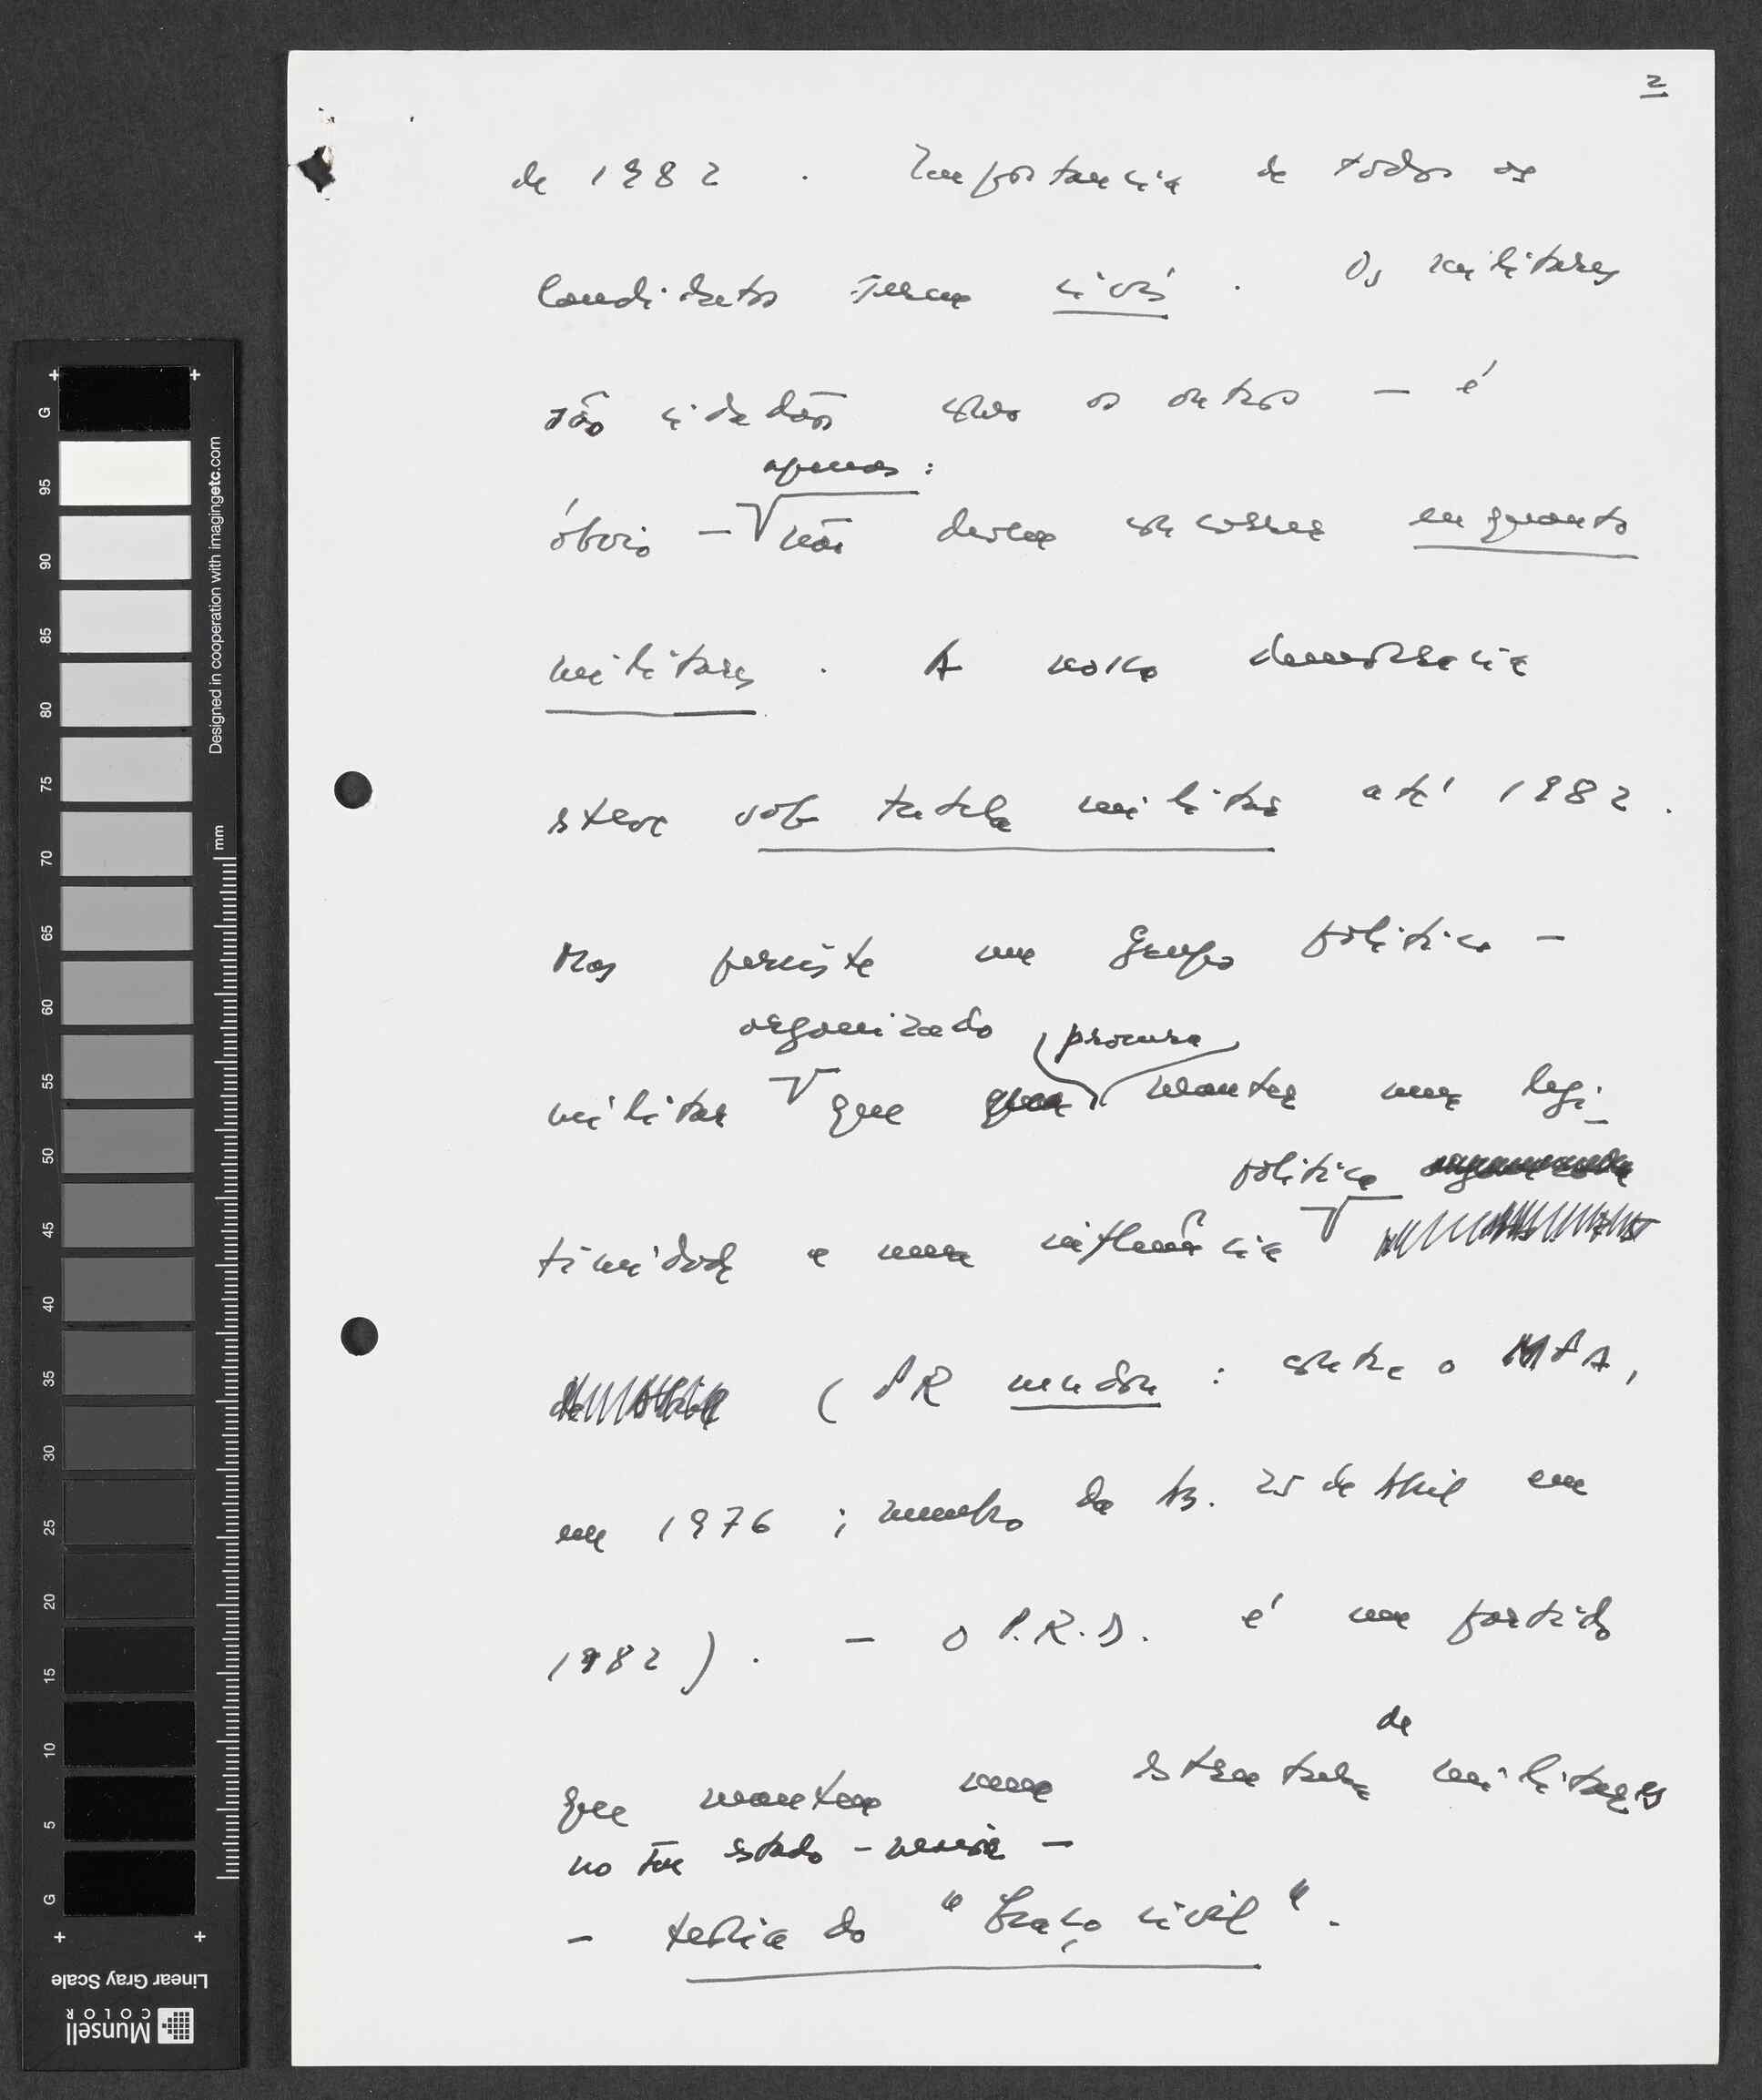 2
de 1982. Importancia de todos os
Candidatos serem civis. Os militares
são cidadãos como os outros — é
apenas:
óbvio — não devem concorrer enquanto
militares. A nossa democracia
esteve sob tutela militar até 1982.
Mas persiste um grupo político -
organizado procura
militar que manter uma legi-
política
timidade e uma influência
(PR mudou: contra o MFA,
em 1976; membro da As. 25 de Abril em
1982). — o P.R.D. é um partido
de
que mantem uma estrutura militares
no seu
- teoria do "braço civil".
G
95
90
85
80
75
70
65
60
55
50
45
40
35
30
25
20
15
10
5
G
mm
Designed in cooperation with imagingetc.com
Linear Gray Scale
Munsell
COLOR